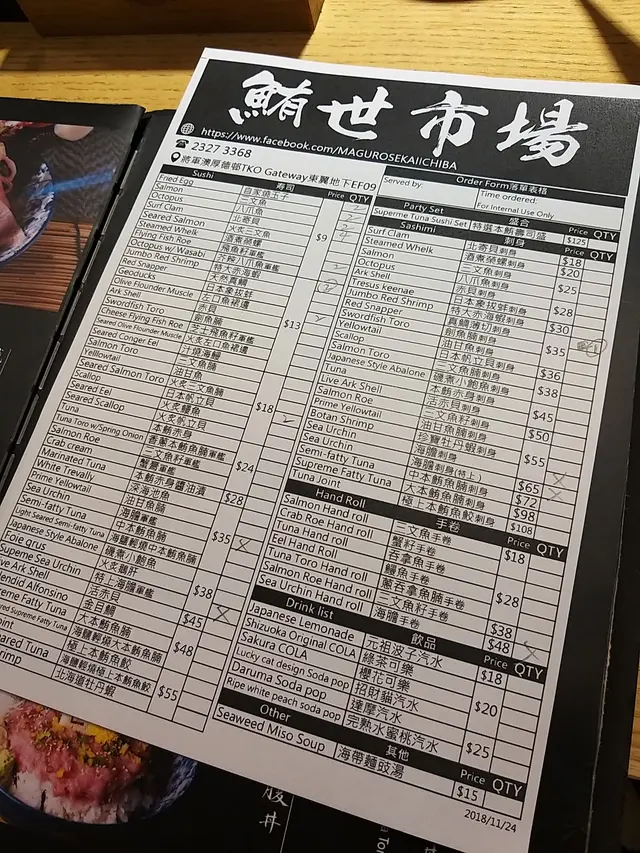 鮪世市場
https://www.facebook.com/MAGUROSEKAIICHIBA
2327 3368
將軍澳厚德邨TKO Gateway東翼地下EF09
Order Form落單表格
Served by:
Time ordered:
For Internal Use Only
Sushi 壽司 Price QTY
Fried Egg 自家燒玉子
Salmon 三文魚
Octopus 八爪魚
Surf Clam 北寄貝
Seared Salmon 火炙三文魚
Steamed Whelk 酒煮榮螺
Flying Fish Roe 飛魚籽軍艦
Octopus w/ Wasabi 芥辣八爪魚軍艦
Jumbo Red Shrimp 特大赤海蝦
Red Snapper 火炙真鯛
Geoducks 日本象拔蚌
Olive Flounder Muscle 左口魚裙邊
Ark Shell 赤貝
Swordfish Toro 劍魚腩
Cheese Flying Fish Roe 芝士飛魚籽軍艦
Seared Olive Flounder Muscle 火炙左口魚裙邊
Seared Conger Eel 火燒海鰻
Salmon Toro 三文魚腩
Yellowtail 油甘魚
Seared Salmon Toro 火炙三文魚腩
Scallop 日本帆立貝
Seared Eel 火炙鰻魚
Seared Scallop 火炙帆立貝
Tuna 本鮪赤身
Tuna Toro w/Spring Onion 香蔥本鮪魚腩軍艦
Salmon Roe 三文魚籽軍艦
Crab cream 蟹膏軍艦
Marinated Tuna 本鮪赤身醬油漬
White Trevally 深海池魚
Prime Yellowtail 油甘魚腩
Sea Urchin 海膽軍艦
Semi-fatty Tuna 中本鮪魚腩
Light Seared Semi-fatty Tuna 海鹽輕燒中本鮪魚腩
Japanese Style Abalone 磯煮小鮑魚
火炙鵝肝
Supreme Sea Urchin 特上海膽軍艦
Live Ark Shell 活赤貝
Splendid Alfonsino 金目鯛
大本鮪魚腩
海鹽輕燒大本鮪魚腩
極上本鮪魚鮫
海鹽輕燒極上本鮪魚鮫
北海道牡丹蝦
$9
$13
$18
$24
$28
$35
$38
$45
$48
$55
Party Set 盛合 Price QTY
Supreme Tuna Sushi Set 特選本鮪壽司盛 $125
Sashimi 刺身 Price QTY
Surf Clam 北寄貝刺身 $18
Steamed Whelk 酒煮榮螺刺身 $20
Salmon 三文魚刺身
Octopus 八爪魚刺身 $25
Ark Shell 赤貝刺身
Tresus Keenae 日本象拔蚌刺身 $28
Jumbo Red Shrimp 特大赤海蝦刺身
Red Snapper 真鯛薄切刺身 $30
Swordfish Toro 劍魚腩刺身
Yellowtail 油甘魚刺身 $35
Scallop 日本帆立貝刺身
Salmon Toro 三文魚腩刺身
Japanese Style Abalone 磯煮小鮑魚刺身 $38
Tuna 本鮪赤身刺身
Live Ark Shell 活赤貝刺身 $45
Salmon Roe 三文魚籽刺身
Prime Yellowtail 油甘魚腩刺身 $50
Botan Shrimp 珍寶牡丹蝦刺身
Sea Urchin 海膽刺身 $55
Sea Urchin 海膽刺身(特上)
Semi-fatty Tuna 中本鮪魚腩刺身 $65
Supreme Fatty Tuna 大本鮪魚腩刺身 $72
Tuna Joint 極上本鮪魚鮫刺身 $98
$108
Hand Roll 手卷 Price QTY
Salmon Hand roll 三文魚手卷 $18
Crab Roe Hand roll 蟹籽手卷
Tuna Hand roll 吞拿魚手卷
Eel Hand Roll 鰻魚手卷 $28
Tuna Toro Hand roll 蔥吞拿魚腩手卷
Salmon Roe Hand roll 三文魚籽手卷 $38
Sea Urchin Hand roll 海膽手卷 $48
Drink list 飲品 Price QTY
Japanese Lemonade 元祖波子汽水 $18
Shizuoka Original COLA 綠茶可樂
Sakura COLA 櫻花可樂 $20
Lucky cat design Soda pop 招財貓汽水
Daruma Soda pop 達摩汽水
Ripe white peach soda pop 完熟水蜜桃汽水 $25
Other 其他 Price QTY
Seaweed Miso Soup 海帶麵豉湯 $15
2018/11/24
腹丼